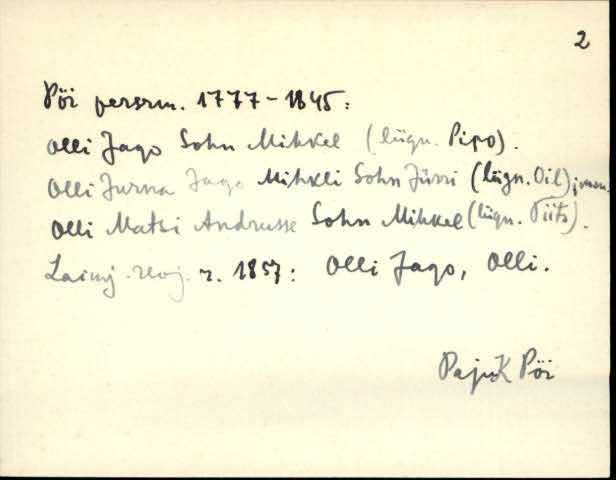 2
Pöi persrm. 1777-1845:
Olli Jago Sohn Mihkel (lügn. Pipo).
Olli Jurna Jago Mihkli Sohn Jürri (lügn. Oil),
Olli Matsi Andrusse Sohn Mihkel (lügn. Piits).
r. 1857: Olli Jago, Olli.
PajuK Pöi